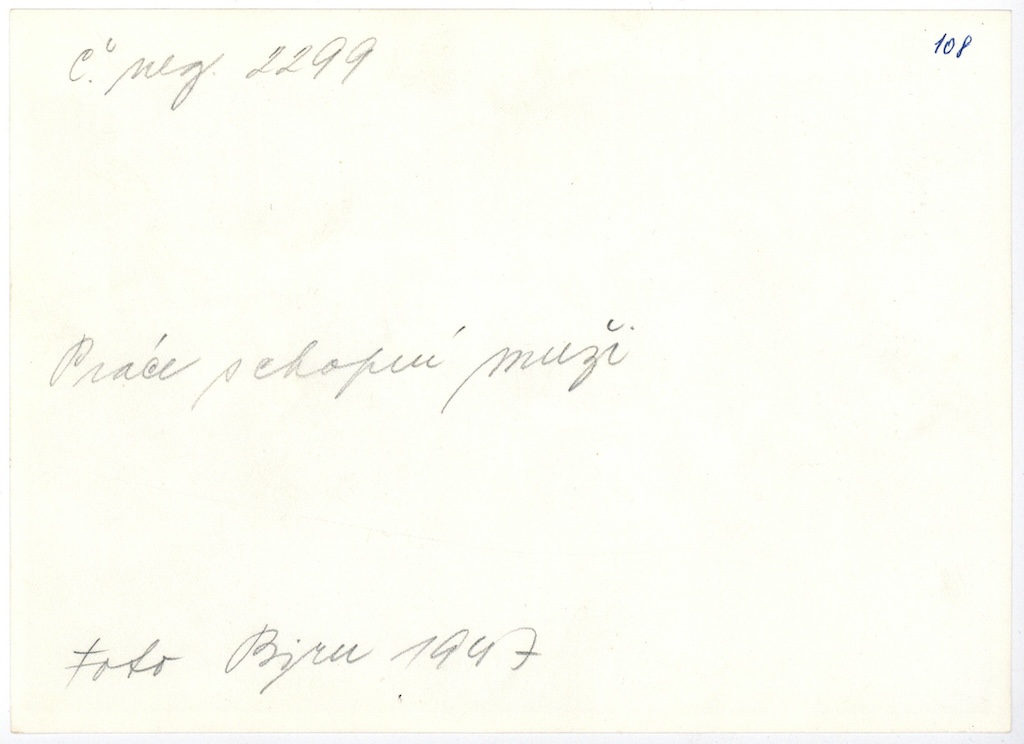 č. neg. 2299
108
Práce schopní muži
Foto Bjrn 1947